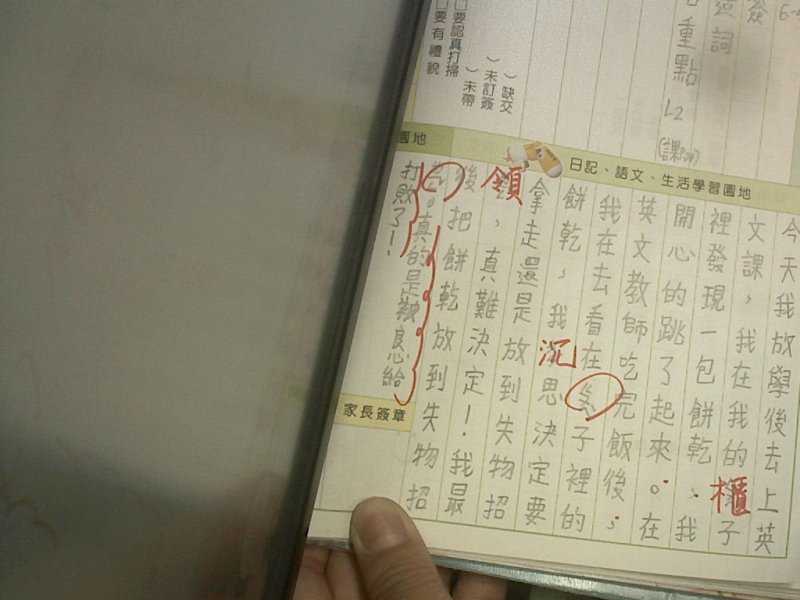 6-
簽
詞
重點 L2
缺交
未訂簽
未帶
□要認真打掃
□要有禮貌
日記、語文、生活學習園地
今天我放學後去上英
文課，我在我的櫃子
裡發現一包餅乾，我
開心的跳了起來。在
英文教師吃完飯後，
我在去看在子裡的
餅乾，我沉思決定要
拿走還是放到失物招
領，真難決定！我最
後把餅乾放到失物招
。真的是被良心給
打敗了！
園地
家長簽章